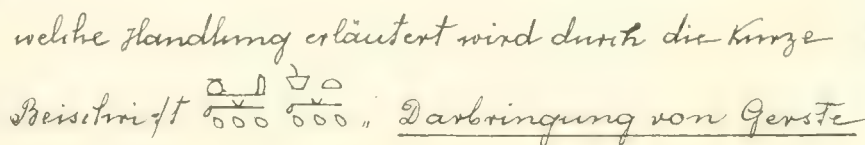 welche Handlung erläutert wird durch die kurze
Beischrift „ Darbringung von Gerste